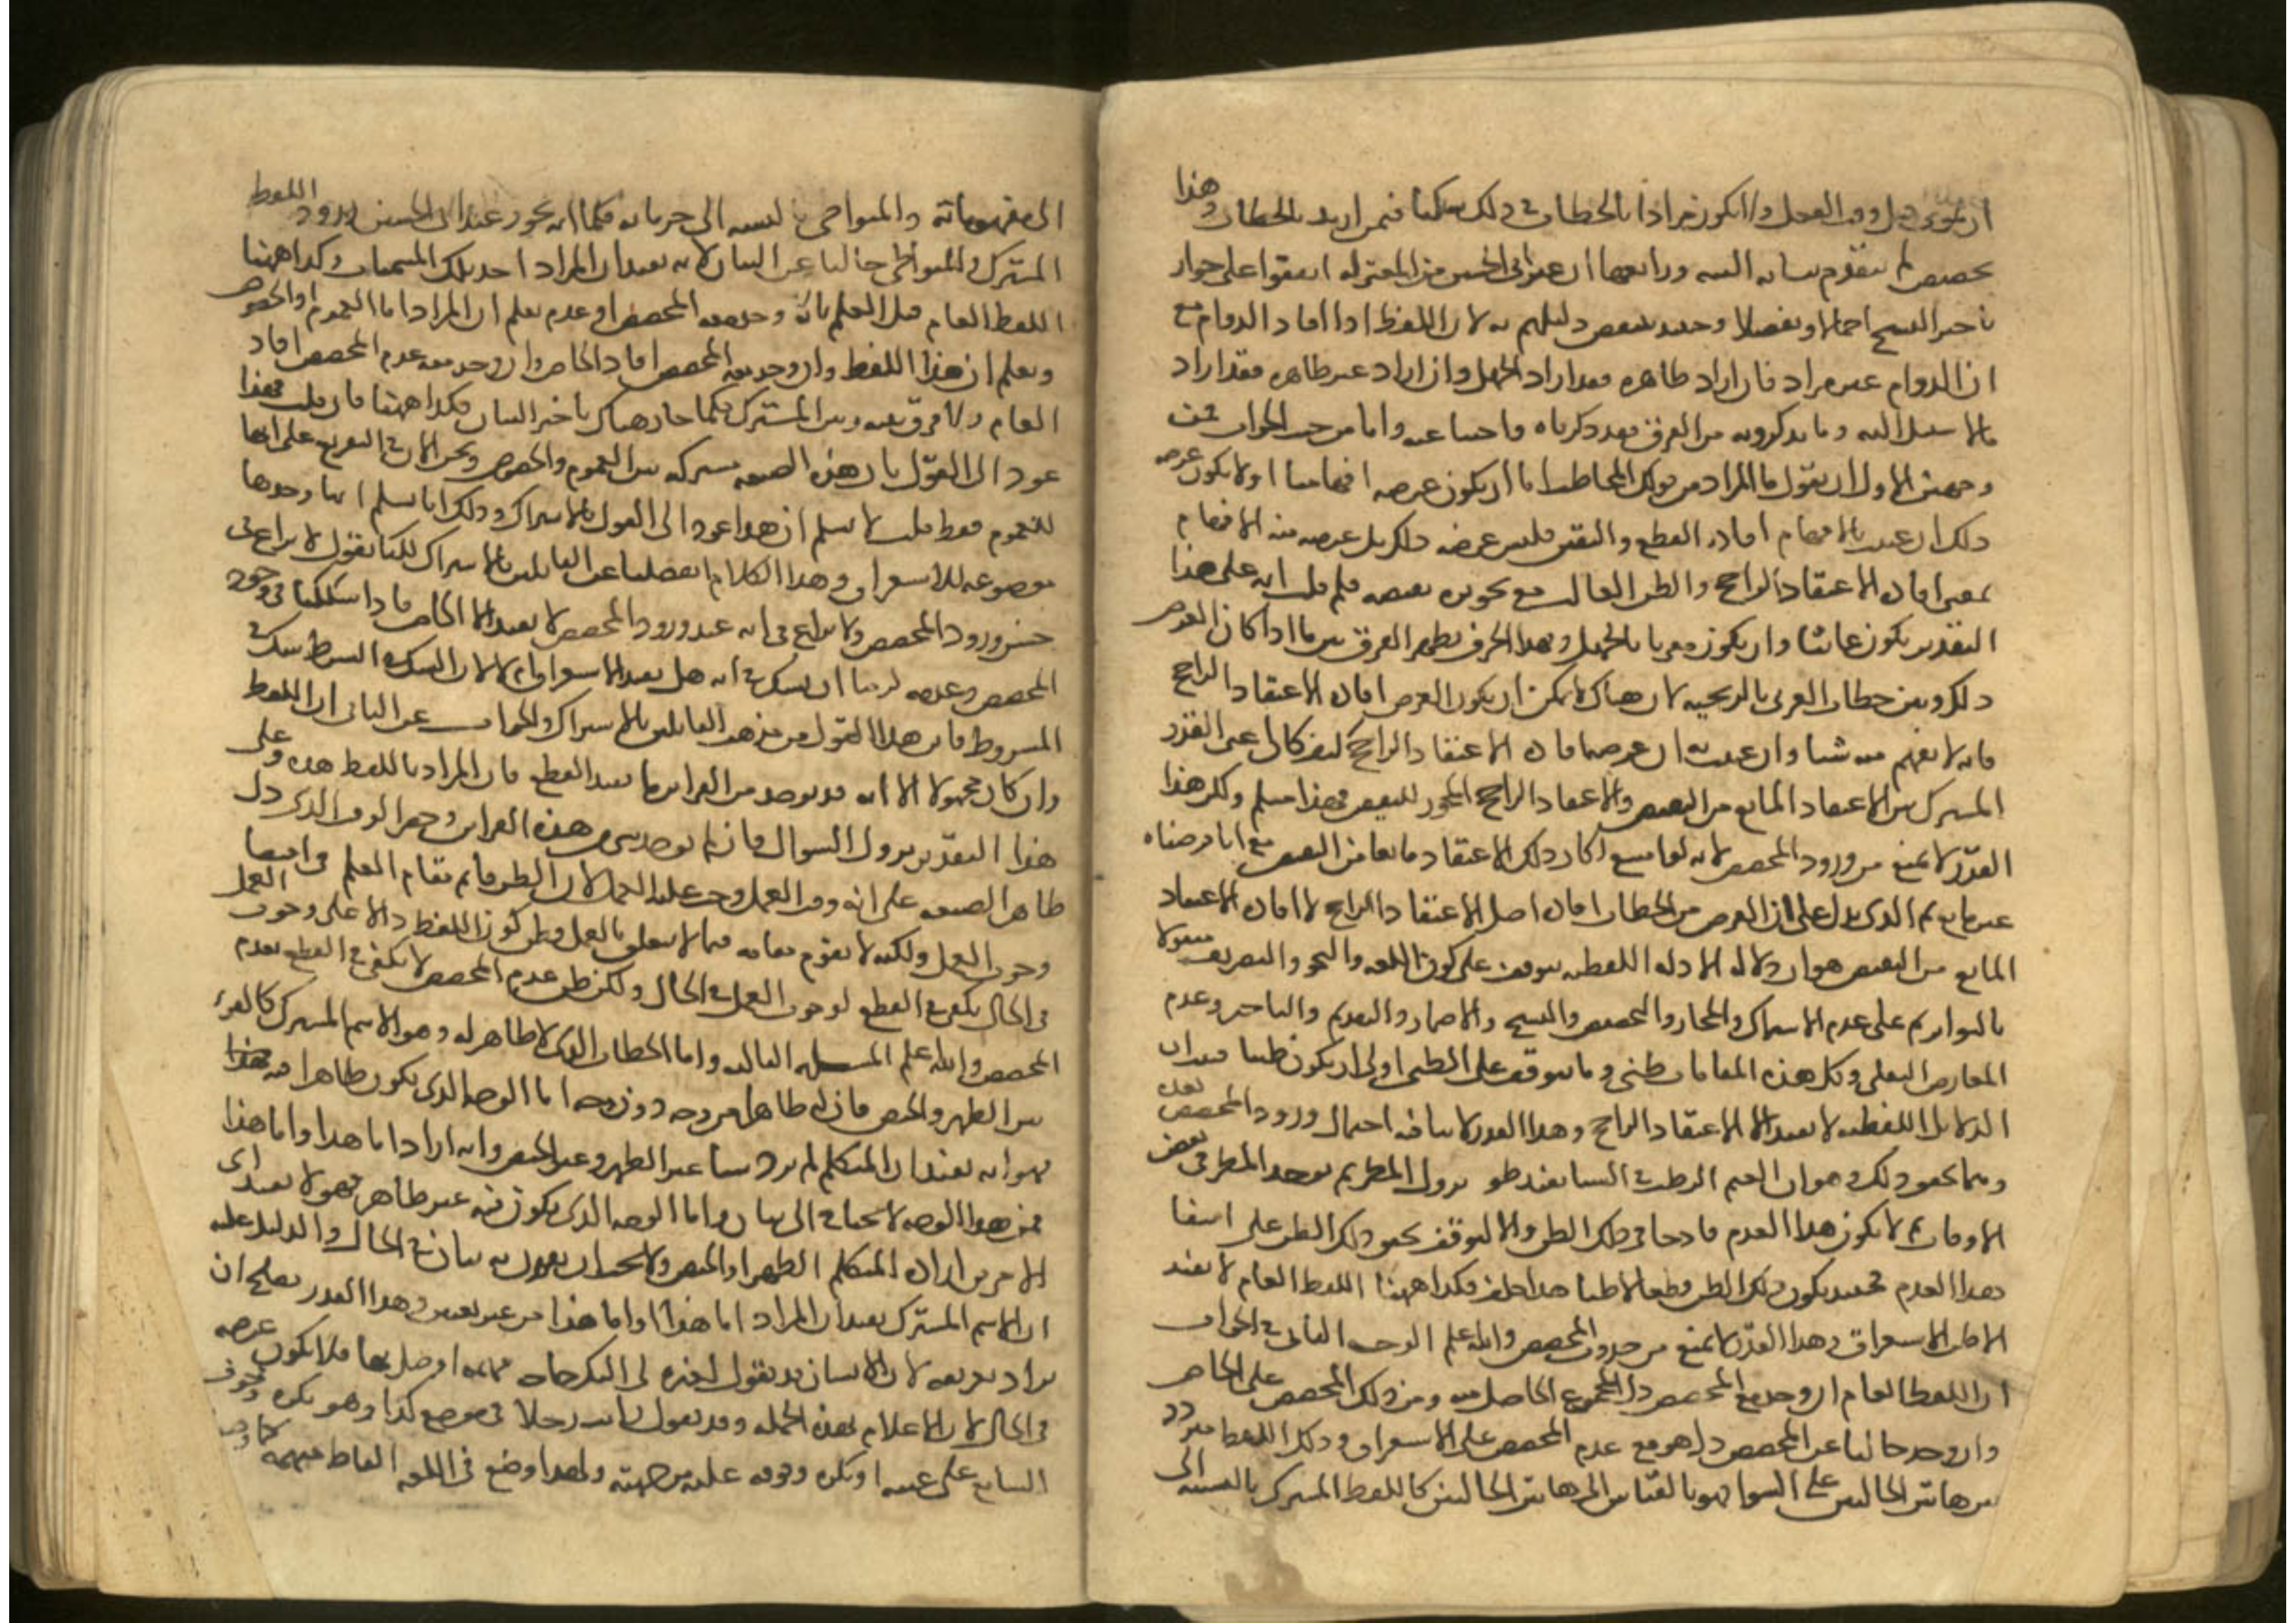 ان يموت قبل وقت الفعل ولا يكون مرادا بالخطاب وفي ذلك شككنا فيمن اريد بالخطاب وهذا
تخصيص لم يتقدم بيانه السه ورابعها ان عند ابي الحسين من المعتزلة اتفقوا على جواز
تاخير النسخ اجمالا وتفصيلا وحينئذ ينتقض دليلهم به لان اللفظ اذا افاد الدوام مع
ان الدوام غير مراد فان اراد ظاهره فقد اراد الجهل وان اراد غير ظاهره فقد اراد
ما لا سبيل اليه وما يذكرونه من الفرق فقد ذكرناه واجبنا عنه واما من حيث الجواب فمن
وجهين الاول ان نقول ما المراد من قولك المخاطب اما ان يكون غرضه افهامنا او لا يكون غرضه
ذلك ان عنيت بالافهام افادة القطع واليقين فليس غرضه ذلك بل غرضه منه الافهام
بمعنى افادة الاعتقاد الراجح والظن الغالب مع تجويز نقيضه فلم قلت انه على هذا
التقدير يكون عابثا وان يكون مغريا بالجهل وبهذا الحرف يظهر الفرق بين ما اذا كان الغرض
ذلك وبين خطاب العربي بالزنجية لان هناك لا يمكن ان يكون الغرض افادة الاعتقاد الراجح
فانه لا يفهم منه شيئا وان عنيت به ان غرضه افادة الاعتقاد الراجح كيف كان اعني القدر
المشترك بين الاعتقاد المانع من النقيض والاعتقاد الراجح المجوز للنقيض فهذا مسلم ولكن هذا
القدر لا يمنع من ورود المخصص لانه لو امتنع لكان ذلك الاعتقاد مانعا من النقيض مع انا فرضناه
غير مانع ثم الذي يدل على ان الغرض من الخطاب افادة اصل الاعتقاد الراجح لا افادة الاعتقاد
المانع من النقيض هو ان دلالة الادلة اللفظية تتوقف على كون اللغة والنحو والتصريف منقولا
بالتواتر ثم على عدم الاشتراك والمجاز والتخصيص والنسخ والاضمار والتقديم والتاخير وعدم
المعارض العقلي وكل هذه المقامات ظني وما يتوقف على الظني اولى ان يكون ظنيا فثبت ان
الدلايل اللفظية لا تفيد الا الاعتقاد الراجح وهذا القدر لا ينافيه احتمال ورود المخصص بعده
ومما يحقق ذلك هو ان الغيم الرطب في الشتا يفيد ظن نزول المطر ثم يوجد المطر في بعض
الاوقات ثم لا يكون هذا العدم قادحا في ذلك الظن والا لتوقف تحقق ذلك الظن على انتفا
هذا العدم فحينئذ يكون ذلك الظن قطعا لا ظنا هذا خلف فكذا ههنا اللفظ العام لا يفيد
الا ظن الاستغراق وهذا القدر لا يمنع من حدوث المخصص والله اعلم الوجه الثاني في الجواب
ان اللفظ العام ان وجد مع المخصص دل المجموع الحاصل منه ومن ذلك المخصص على الخاص
وان وجد خاليا عن المخصص دل هو مع عدم المخصص على الاستغراق وذلك اللفظ متردد
بين هاتين الحالتين على السوا فهو بالقياس الى هاتين الحالتين كاللفظ المشترك بالنسبة الى
الى مفهوماته والمتواطي بالنسبة الى جزياته فكما انه يجوز عند ابي الحسين ورود اللفظ
المشترك والمتواطي خاليا عن البيان لانه يفيد ان المراد احد تلك المسميات وكذا ههنا
اللفظ العام قبل العلم بانه وجد معه المخصص او عدم يعلم ان المراد اما العموم او الخصوص
ويعلم ان هذا اللفظ وان وجد معه المخصص افاد الخاص وان وجد معه عدم المخصص افاد
العام ولا فرق بينه وبين المشترك فكما جاز هناك تاخير البيان فكذا ههنا فان قلت فهذا
عود الى القول بان هذه الصيغة مشتركة بين العموم والخصوص ونحن الان في التفريع على انها
للعموم فقط قلت لا نسلم ان هذا عود الى القول بالاشتراك وذلك انا نسلم انها وحدها
موضوعة للاستغراق وهذا الكلام انفصلنا عن القايلين بالاشتراك لكنا نقول لا نزاع في
حسن ورود المخصص ولا نزاع في انه عند ورود المخصص لا يفيد الا الخاص فاذا شككنا في وجود
المخصص وعدمه لزمنا ان نشك في انه هل يفيد الاستغراق ام لا لان الشك في الشرط شك في
المشروط فاين هذا القول من مذهب القايلين بالاشتراك والجواب عن الثاني ان اللفظ
وان كان محمولا الا انه قد يوجد من القراين ما يفيد القطع فان المراد باللفظ هذه وعلى
هذا التقدير يزول السوال فان لم يوجد شي من هذه القراين وحضر الوقت الذي دل
ظاهر الصيغة على انه وقت العمل وجب عليه العمل لان الظن قايم مقام العلم في اقتضا
وجوب العمل ولكنه لا يقوم مقامه فيما لا يتعلق بالعمل وظن كون اللفظ دالا على وجوب العمل
في الحال يكفي في القطع لوجوب العمل في الحال ولكن ظن عدم المخصص لا يكفي في القطع بعدم
المخصص والله اعلم المسلة الثالثة واما الخطاب الذي لا ظاهر له وهو الاسم المشترك كالقرء
بين الطهر والحيض فان له ظاهرا من وجه دون وجه اما الوجه الذي يكون ظاهرا فيه
فهو انه يفيد ان المتكلم لم يرد شيا غير الطهر وغير الحيض وانه اراد اما هذا واما هذا
فمن هذا الوجه لا يحتاج الى بيان واما الوجه الذي يكون فيه غير ظاهر فهو لا يفيد اي
الامرين اراد المتكلم الطهر او الحيض ولا يجب ان يقرن به بيان في الحال والدليل عليه
ان الاسم المشترك يفيد ان المراد اما هذا واما هذا من غير تعيين وهذا القدر يصلح ان
يراد تعريفه لان الانسان قد يقول لغيره لي اليك حاجة مهمة اوصلها فلا يكون غرضه
في الحال الا الاعلام بهذه الجملة وقد يقول رايت رجلا في موضع كذا وهو يكره وقوف
السامع على عينه او يكره وقوفه عليه من جهته ولهذا وضع في اللغة الفاظ مبهمة